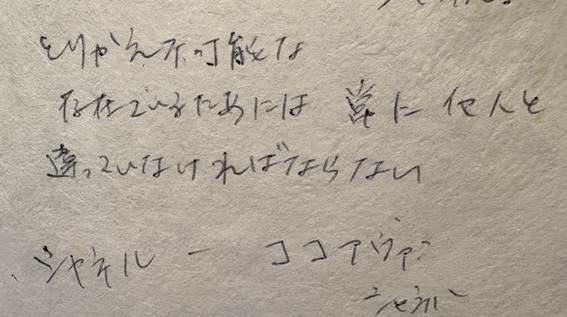 とりかえ不可能な
存在でいるためには 常に 他人と
違っていなければならない
シャネル ー ココアヴァン
シャネル